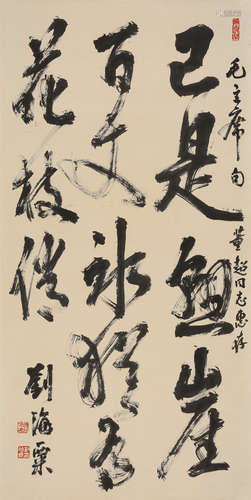 已是懸崖
百丈冰猶有
花枝俏
毛主席句
董超同志惠存
劉海粟